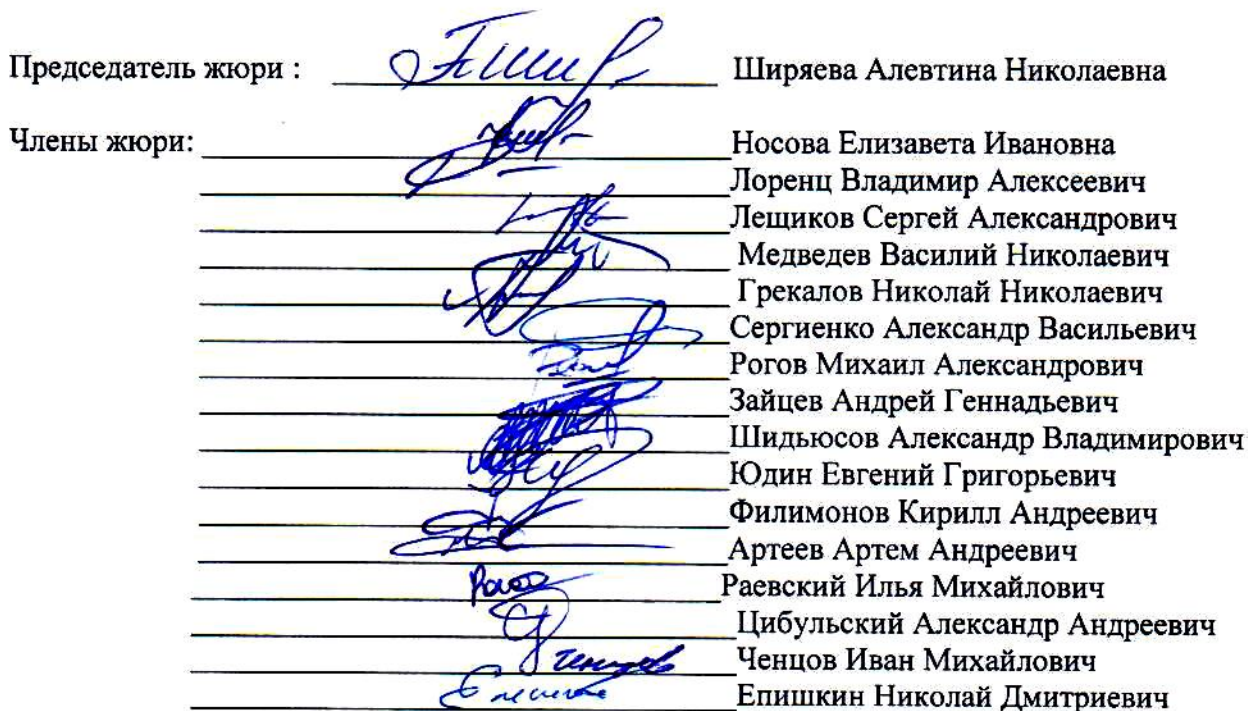 Председатель жюри : Ширяева Алевтина Николаевна
Члены жюри: Носова Елизавета Ивановна
Лоренц Владимир Алексеевич
Лещиков Сергей Александрович
Медведев Василий Николаевич
Грекалов Николай Николаевич
Сергиенко Александр Васильевич
Рогов Михаил Александрович
Зайцев Андрей Геннадьевич
Шидьюсов Александр Владимирович
Юдин Евгений Григорьевич
Филимонов Кирилл Андреевич
Артеев Артем Андреевич
Раевский Илья Михайлович
Цибульский Александр Андреевич
Ченцов Иван Михайлович
Епишкин Николай Дмитриевич